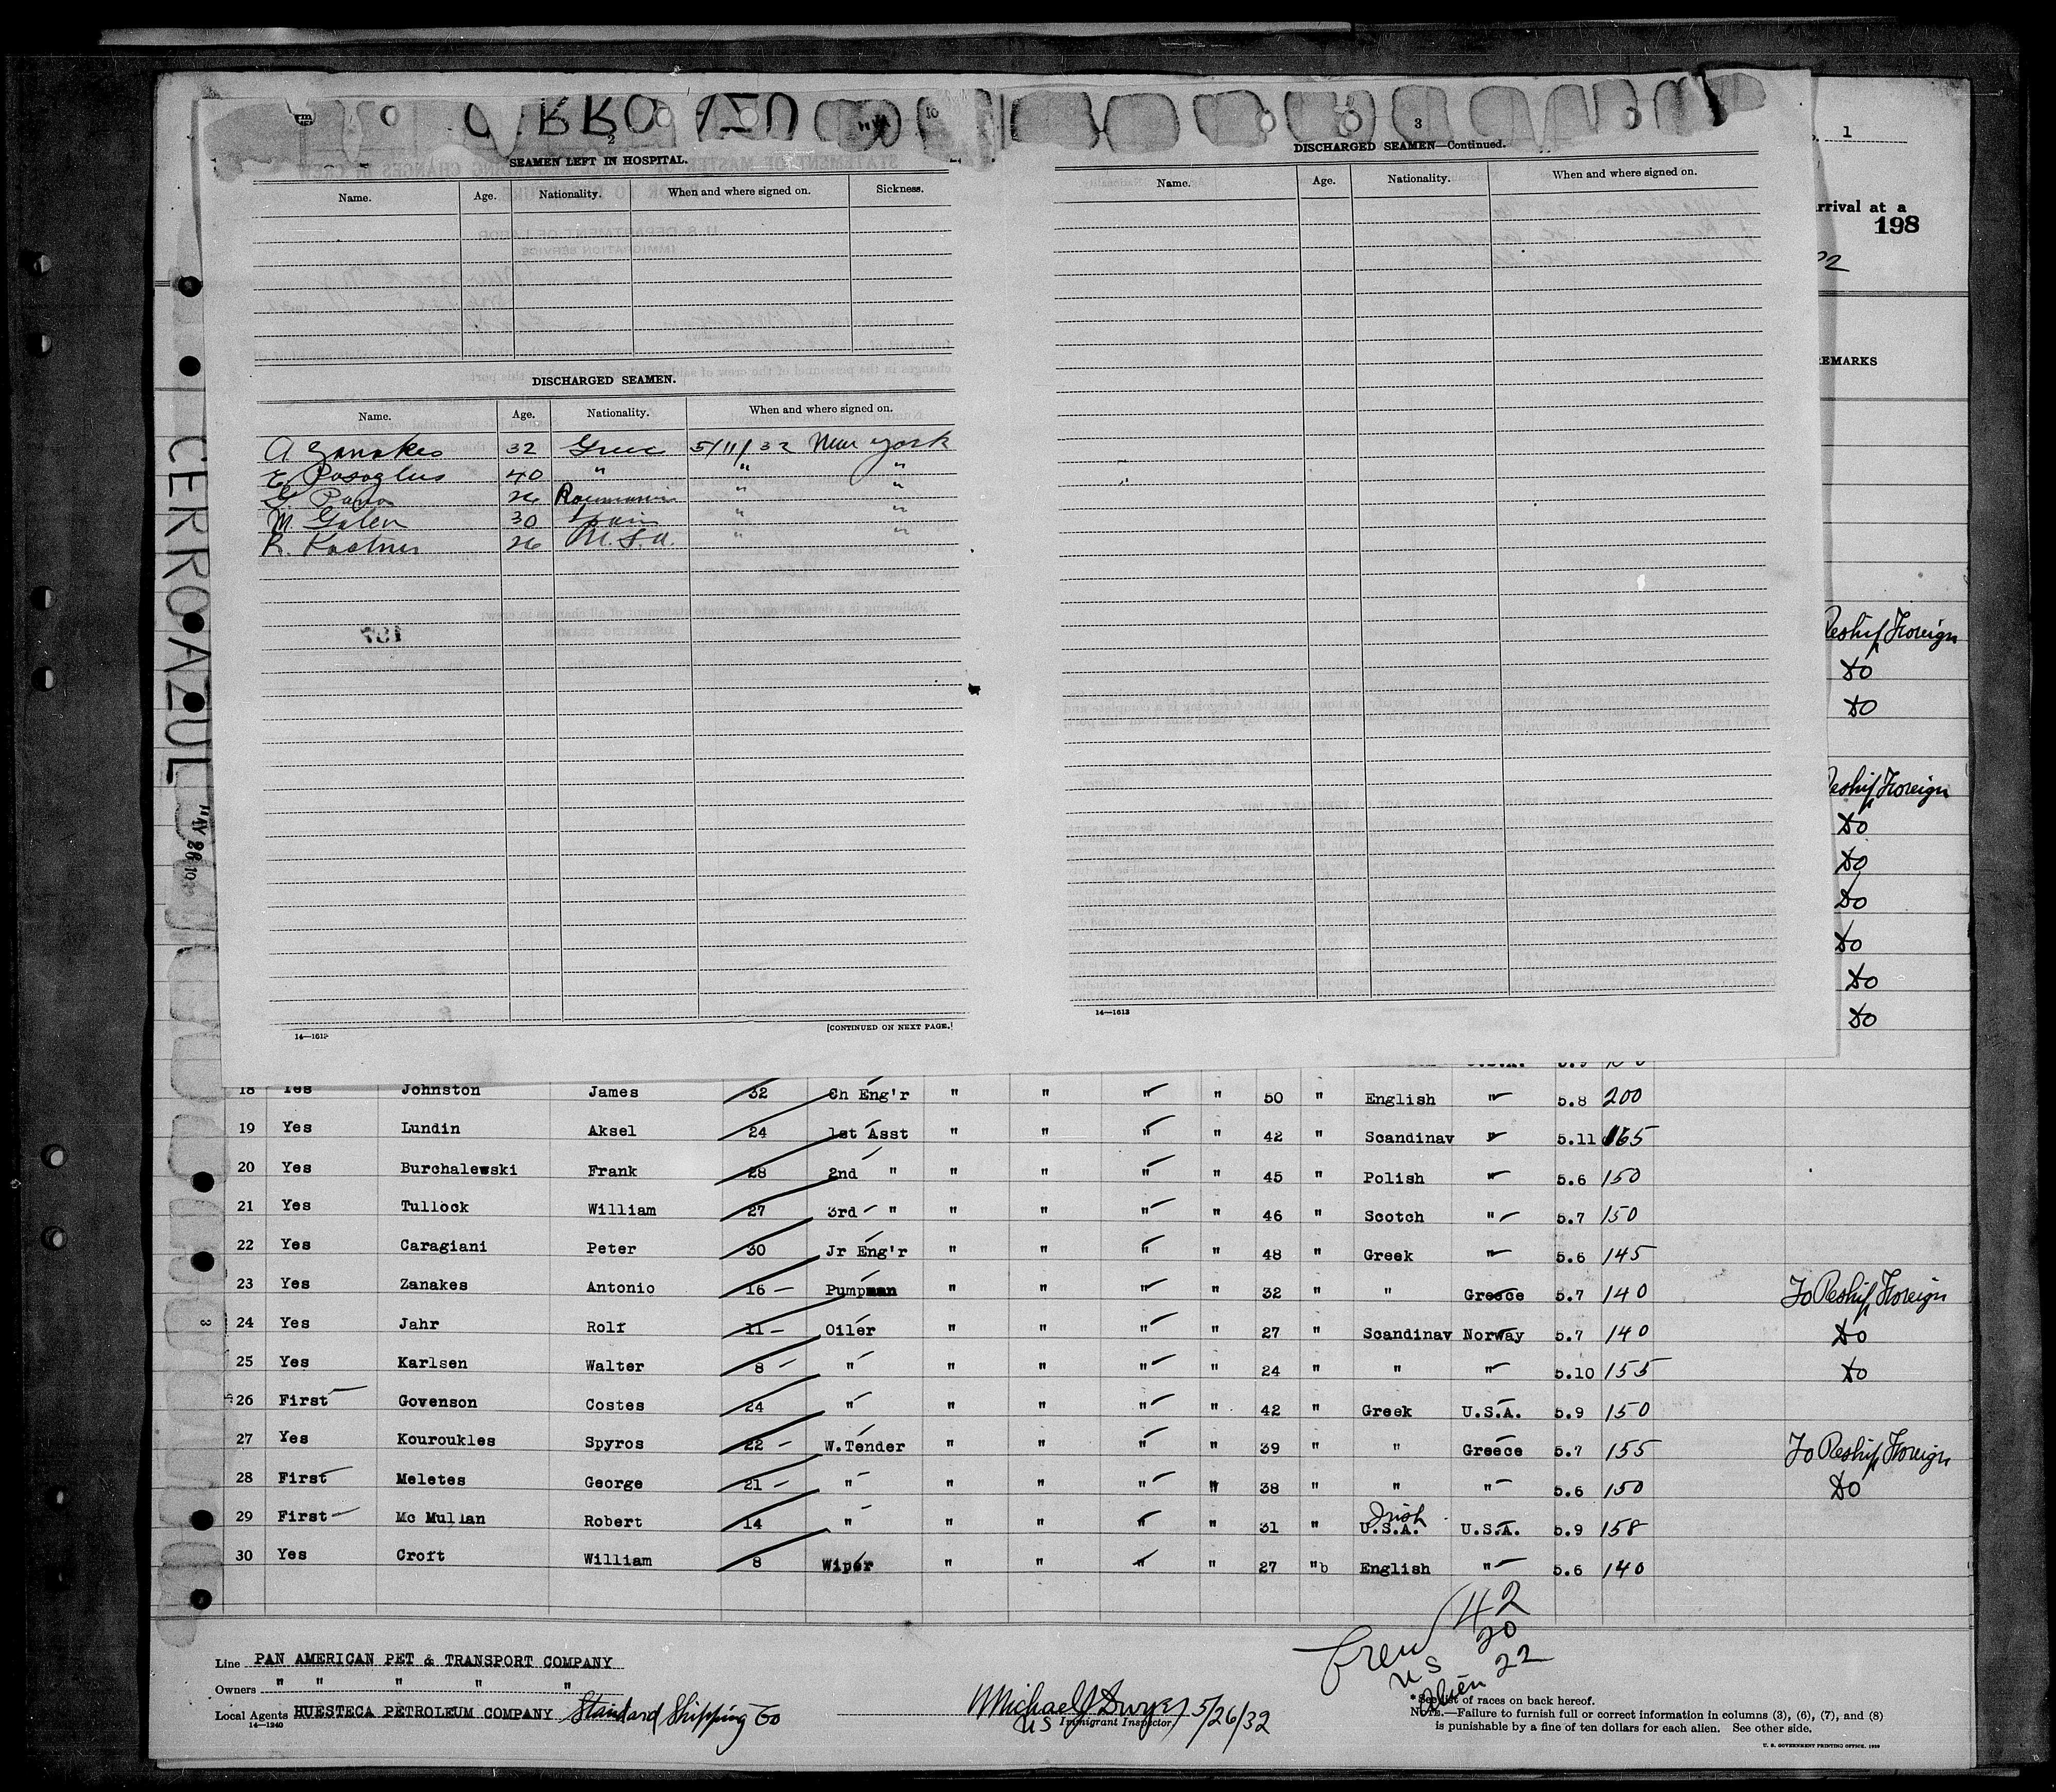 CERRO AZUL
2
SEAMEN LEFT IN HOSPITAL.
Name. Age. Nationality. When and where signed on. Sickness.
DISCHARGED SEAMEN.
Name. Age. Nationality. When and where signed on.
A Zanakes 32 5/11/32 New York
E. 40 " " "
G 26 Roumania " "
M. 30 Spain " "
R. Kastner 26 U.S.A. " "
14—1613
[CONTINUED ON NEXT PAGE.]
3
DISCHARGED SEAMEN—Continued.
Name. Age. Nationality. When and where signed on.
14—1613
1
arrival at a
198
EMARKS
Reship Foreign
Do
Do
Reship Foreign
Do
Do
Do
Do
Do
Do
18 Yes Johnston James 32 Ch Eng'r " " " " 50 " English " 5.8 200
19 Yes Lundin Aksel 24 1st Asst " " " " 42 " Scandinav " 5.11 165
20 Yes Burchalewski Frank 28 2nd " " " " " 45 " Polish " 5.6 150
21 Yes Tullock William 27 3rd " " " " " 46 " Scotch " 5.7 150
22 Yes Caragiani Peter 30 Jr Eng'r " " " " 48 " Greek " 5.6 145
23 Yes Zanakes Antonio 16 — Pumpman " " " " 32 " " Greece 5.7 140 To Reship Foreign
24 Yes Jahr Rolf 11 — Oiler " " " " 27 " Scandinav Norway 5.7 140 Do
25 Yes Karlsen Walter 8 — " " " " " 24 " " " 5.10 155 Do
26 First Govenson Costes 24 " " " " " 42 " Greek U.S.A. 5.9 150
27 Yes Kouroukles Spyros 22 — W.Tender " " " " 39 " " Greece 5.7 155 To Reship Foreign
28 First Meletes George 21 — " " " " " 38 " " " 5.6 150 Do
29 First Mc Mullan Robert 14 " " " " " 31 " Irish U.S.A. U.S.A. 5.9 158
30 Yes Croft William 8 Wiper " " " " 27 "b English " 5.6 140
Crew 42
US 20
Alien 22
Line PAN AMERICAN PET & TRANSPORT COMPANY
Owners " " " " "
Local Agents HUESTECA PETROLEUM COMPANY Standard Shipping Co
14—1240
Michael J Dwyer 5/26/32
US Immigrant Inspector
* See list of races on back hereof.
NOTE.—Failure to furnish full or correct information in columns (3), (6), (7), and (8)
is punishable by a fine of ten dollars for each alien. See other side.
U. S. GOVERNMENT PRINTING OFFICE, 1930